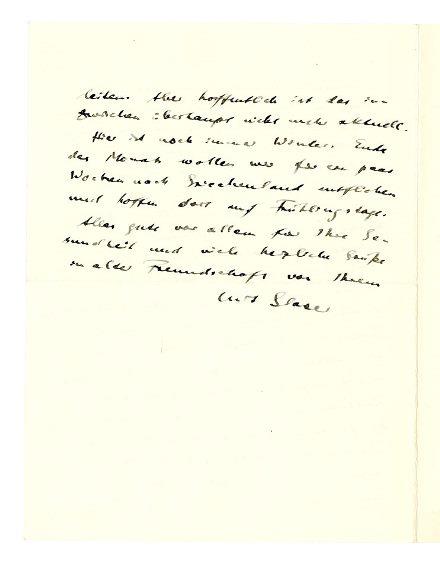 leiten. Aber hoffentlich ist das in-
zwischen überhaupt nicht mehr aktuell.
Hier ist noch immer Winter. Ende
des Monats wollen wir für ein paar
Wochen nach Griechenland entfliehen
und hoffen dort auf Frühlingstage.
Alles gute vor allem für Ihre Ge-
sundheit und viele herzliche Grüße
in alter Freundschaft von Ihrem
Curt Glaser